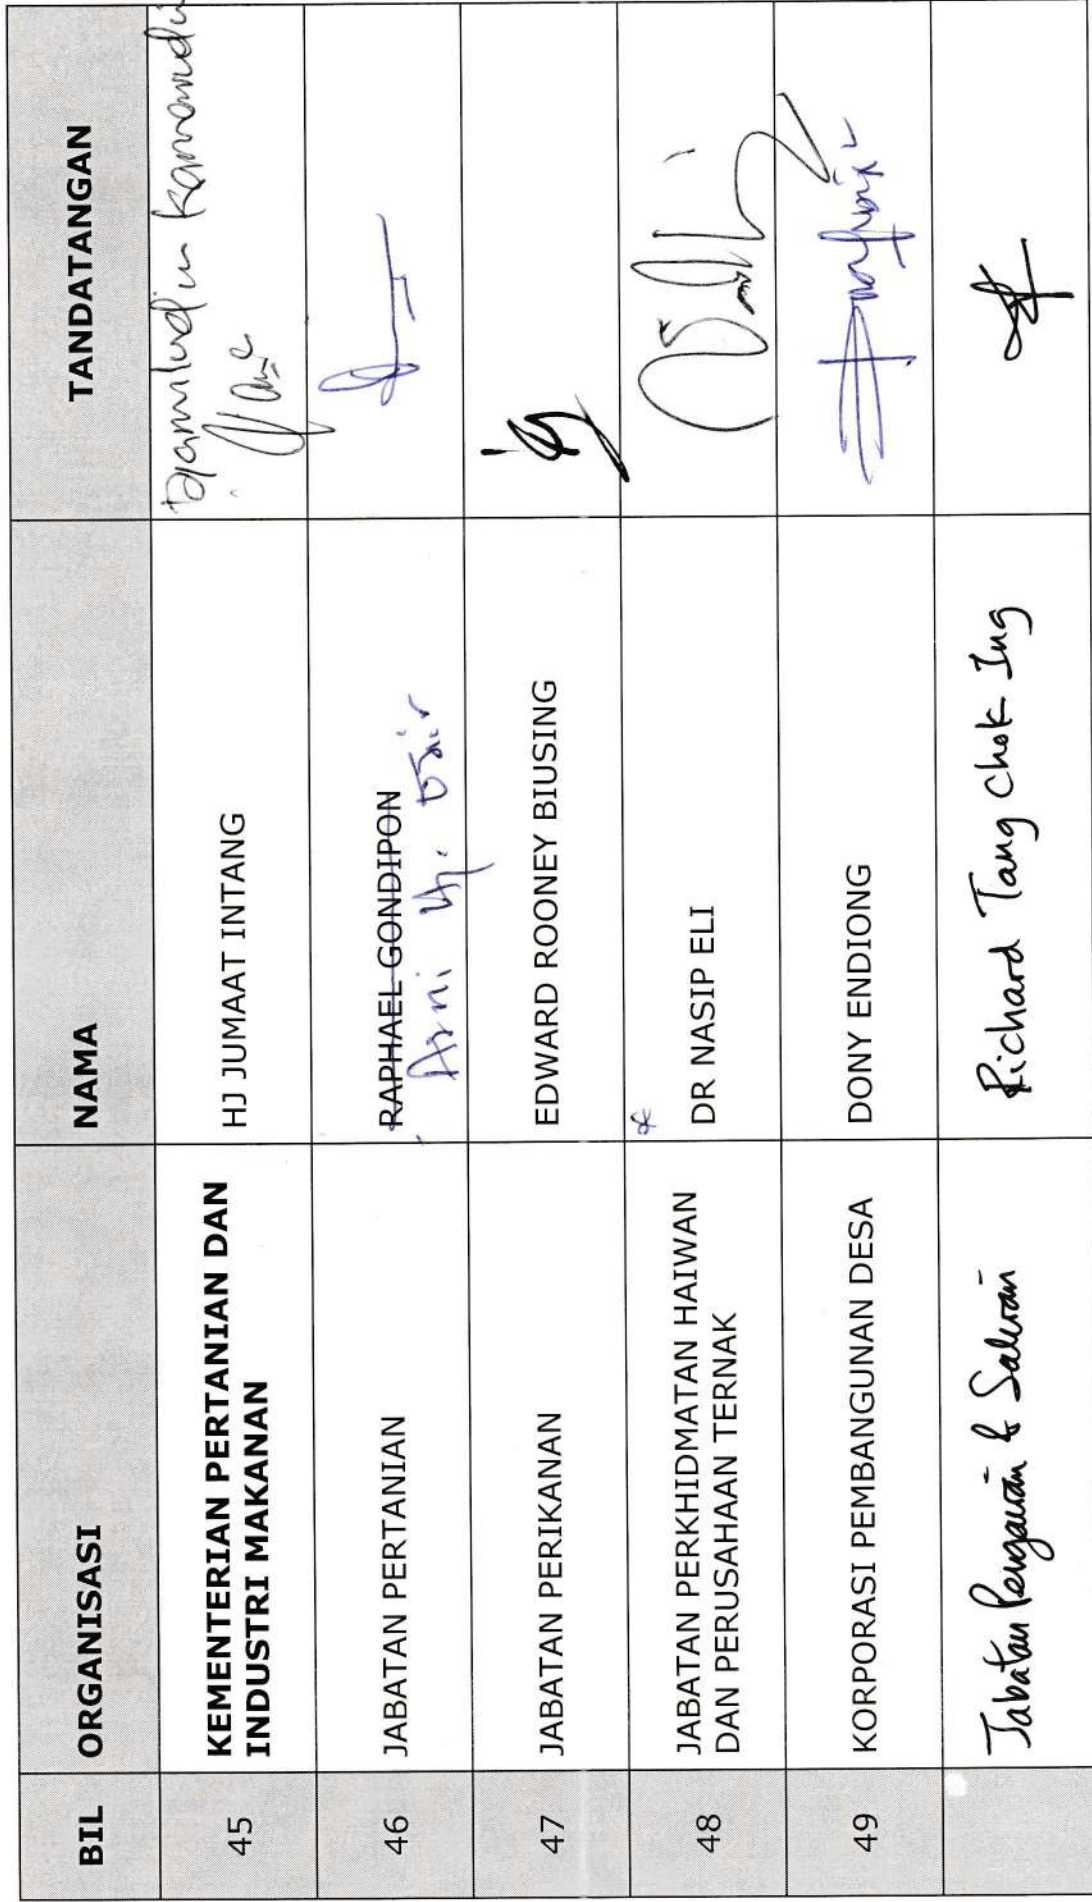 BIL ORGANISASI NAMA TANDATANGAN
45 KEMENTERIAN PERTANIAN DAN INDUSTRI MAKANAN HJ JUMAAT INTANG
46 JABATAN PERTANIAN RAPHAEL GONDIPON
47 JABATAN PERIKANAN EDWARD ROONEY BIUSING
48 JABATAN PERKHIDMATAN HAIWAN DAN PERUSAHAAN TERNAK DR NASIP ELI
49 KORPORASI PEMBANGUNAN DESA DONY ENDIONG
Jabatan Pengairan & Saliran Richard Tang Chok Ing